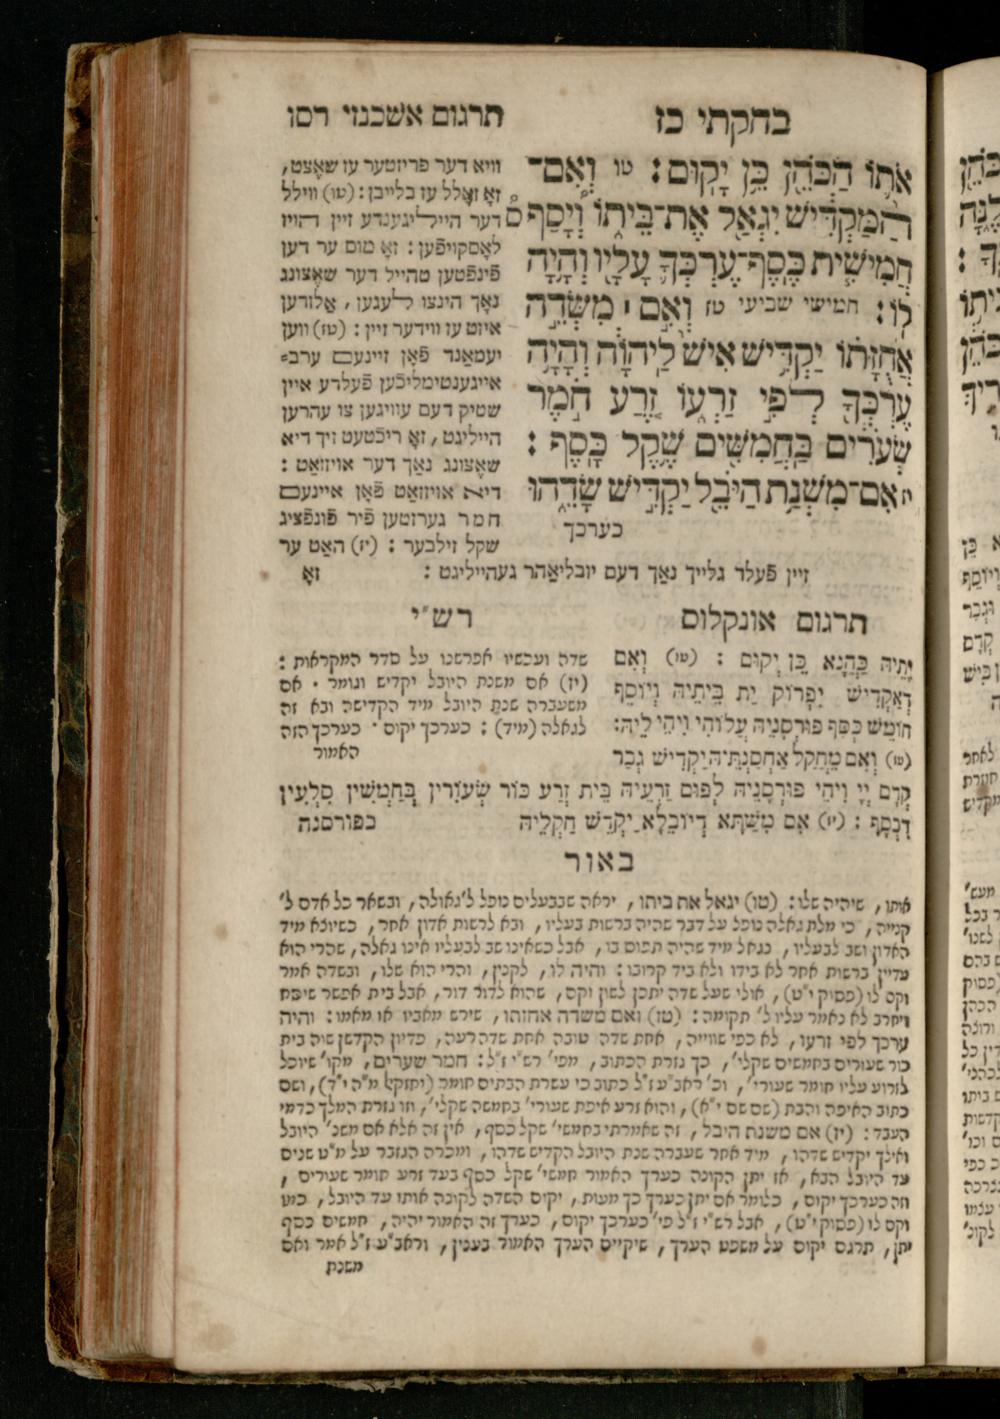 בחקתי כז
תרגום אשכנזי רסו
אֹתוֹ הַכֹּהֵן כֵּן יָקוּם : טו וְאִם־
הַמַּקְדִּישׁ יִגְאַל אֶת־בֵּיתוֹ וְיָסַף
חֲמִישִׁית כֶּסֶף־עֶרְכְּךָ עָלָיו וְהָיָה
לוֹ : חמישי שביעי טז וְאִם ׀ מִשְּׂדֵה
אֲחֻזָּתוֹ יַקְדִּישׁ אִישׁ לַיהוָֹה וְהָיָה
עֶרְכְּךָ לְפִי זַרְעוֹ זֶרַע חֹמֶר
שְׂעֹרִים בַּחֲמִשִּׁים שֶׁקֶל כָּסֶף :
יז אִם־מִשְּׁנַת הַיֹּבֵל יַקְדִּישׁ שָׂדֵהוּ
כערכך
וויא דער פריזטער עז שאֶצט,
זאָ זאָלל עז בלייבן : (טו) ווילל
דער הייליגענדע זיין הויז
לאָסקויפֿען : זאָ מוס ער דען
פֿינפֿטען טהייל דער שאֶצונג
נאָך הינצו לעגען, אַלזדען
איזט עז ווידער זיין : (טז) ווען
יעמאַנד פֿאָן זיינעם ערב=
אייגענטימליכֿען פֿעלדע איין
שטיק דעם עוויגען צו עהרען
הייליגט, זאָ ריכֿטעט זיך דיא
שאֶצונג נאַך דער אויזזאַט :
דיא אויזזאַט פֿאָן איינעם
חמר גערזטען פֿיר פֿונפֿציג
שקל זילבער : (יז) האַט ער
זיין פֿעלד גלייך נאַך דעם יובליאַהר געהייליגט : זאָ
תרגום אונקלוס
יָתֵיהּ כַּהֲנָא כֵּן יְקוּם : (טו) וְאִם
דְאַקְדִּישׁ יִפְרוֹק יַת בֵּיתֵיהּ וְיוֹסֵף
חוֹמֶשׁ כְּסַף פּוּרְסָנֵיהּ עֲלוֹהִי וִיהֵי לֵיהּ :
(טז) וְאִם מֵחֲקַל אַחְסַנְתֵּיהּ יַקְדִישׁ גְּבַר
קֳדָם יְיָ וִיהֵי פּוּרְסָנֵיהּ לְפוּם זַרְעֵיהּ בֵּית זְרַע כּוֹר שְׂעוֹרִין בְּחַמְשִׁין סִלְעִין
דִּכְסָף : (יז) אִם מִשַּׁתָּא דְיוֹבֵלָא יַקְדֵּשׁ חַקְלֵיהּ כפורסנה
רש״י
שדה ועכשיו אפרשנו על סדר המקראות :
(יז) אם משנת היובל יקדיש וגומר . אם
משעברה שנת היובל מיד הקדישה ובא זה
לגאלה (מיד) : כערכך יקום . כערכך הזה
האמור
באור
אותו, שיהיה שלו : (טו) יגאל את ביתו, יראה שבבעלים נופל ל׳ גאולה, ובשאר כל אדם ל׳
קנייה, כי מלת גאלה נופל על דבר שהיה ברשות בעליו, ובא לרשות אדון אחר, כשיוצא מיד
האדון ושב לבעליו, נגאל מיד שהיה תפוס בו, אבל כשאינו שב לבעליו אינו גאלה, שהרי הוא
עדיין ברשות אחר לא בידו ולא ביד קרובו : והיה לו, לקנין, והרי הוא שלו, ובשדה אמר
וקם לו (פסוק י״ט), אולי שעל שדה יתכן לשון וקם, שהוא לדור דור, אבל בית אפשר שיפת
ויחרב לא נאמר עליו ל׳ תקומה : (טז) ואם משדה אחוזתו, שירש מאביו או מאמו : והיה
ערכך לפי זרעו, לא כפי שווייה, אחת שדה טובה אחת שדה רעה, פדיון הקדשן שוה בית
כור שעורים בחמשים שקלי׳, כך גזרת הכתוב, מפי׳ רש״י ז״ל : חמר שערים, מקו׳ שיוכל
לזרוע עליו חומר שעורי׳, וכ׳ ראב״ע ז״ל כתוב כי עשרת הבתים חומר (יחזקל מ״ה י״ד), ושם
כתוב האיפה והבת (שם שם י״א), והוא זרע איפת שעורי׳ בחמשה שקלי׳, וזו גזרת המלך כדמי
העבד : (יז) אם משנת היבל, זה שאמרתי בחמשי׳ שקל כסף, אין זה אלא אם משנ׳ היובל
ואילך יקדיש שדהו, מיד אחר שעברה שנת היובל הקדיש שדהו, ומכרה הגזבר על מ״ט שנים
עד היובל הבא, אז יתן הקונה כערך האמור חמשי׳ שקל כסף בעד זרע חומר שעורים,
וזה כערכך יקום, כלומר אם יתן כערך כך מעות, יקים השדה לקונה אותו עד היובל, כמו
וקם לו (פסוק י״ט), אבל רש״י ז״ל פי׳ כערכך יקום, כערך זה האמור יהיה, חמשים כסף
יתן, תרגם יקום על משפט הערך, שיקיים הערך האמור בענין, וראב״ע ז״ל אמר ואם
משנת